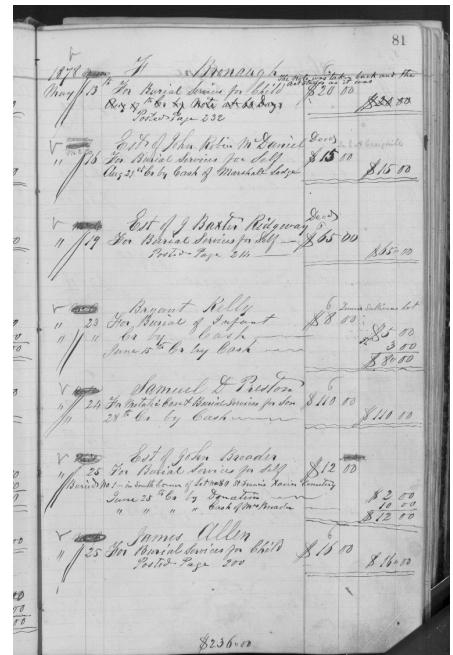 81
1878
May 13th For Burial Services for Child $20 00
The Note was taken back and the
$20 00
By Note at 60 Days
Posted Page 232
Est of John Robin McDaniel Decd
" 16 For Burial Services for Self $15 00
Aug 21st Cr by Cash of Marshall Lodge $15 00
Est of J Baxter Ridgeway Decd
" 19 For Burial Services for Self $65 00
Posted Page 214 $65 00
Bryant Kelly
" 23 For Burial of Infant $8 00
" " Cr by Cash $5 00
June 15th Cr by Cash 3 00
$8 00
Samuel D Preston
" 24 For Metalic Casket Burial Services for Son $110 00
28th Cr by Cash $110 00
Est of John Broader
" 25 For Burial Services for Self $12 00
Buried No 1 in South Corner of Lot No 80 St Francis Xavier Cemetery
June 25th Cr by Donation $2 00
" " " " Cash of Mrs Broader 10 00
$12 00
James Allen
" 25 For Burial Services for Child $16 00
Posted Page 200 $16 00
$236 00